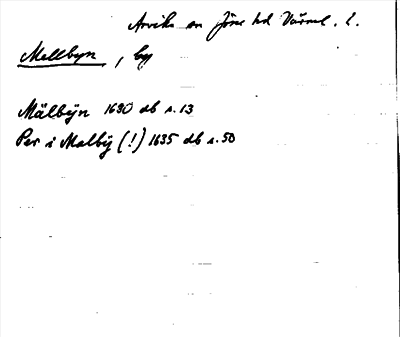 Arvika sn Jösse hd Värml. l.
Mellbyn, by
Mälbÿn 1690 db s. 13
Per i Malbÿ (!) 1635 db s. 50